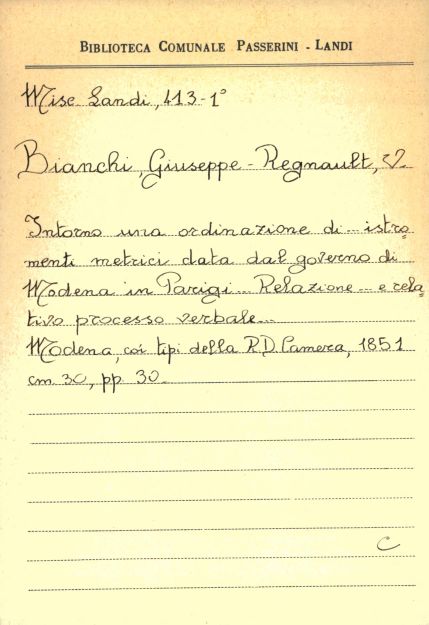 BIBLIOTECA COMUNALE PASSERINI - LANDI
Misc. Landi, 413-1°
Bianchi, Giuseppe - Regnault, V.
Intorno una ordinazione di ... istro-
menti metrici data dal governo di
Modena in Parigi... Relazione... e rela-
tivo processo verbale...
Modena, coi tipi della R.D. Camera, 1851
cm. 30, pp. 30.
C